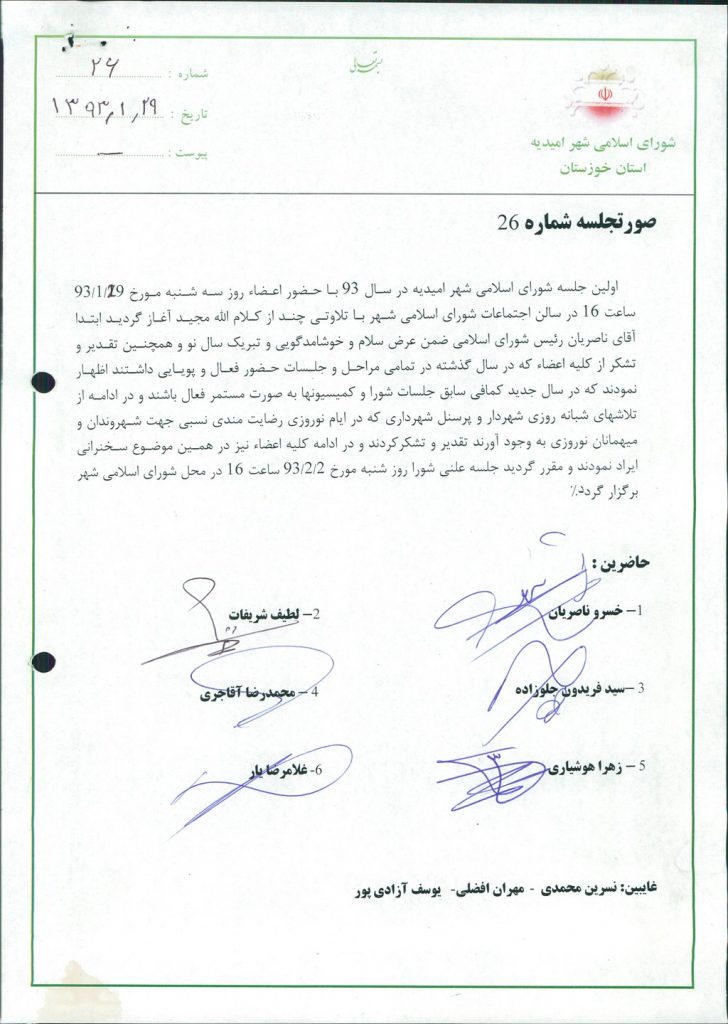 بسمه تعالی
شماره : ۲۶
تاریخ : ۱۳۹۳/۱/۲۹
پیوست : —
شورای اسلامی شهر امیدیه
استان خوزستان
صورتجلسه شماره 26
اولین جلسه شورای اسلامی شهر امیدیه در سال 93 با حضور اعضاء روز سه شنبه مورخ 93/1/29
ساعت 16 در سالن اجتماعات شورای اسلامی شهر با تلاوتی چند از کلام الله مجید آغاز گردید ابتدا
آقای ناصریان رئیس شورای اسلامی ضمن عرض سلام و خوشامدگویی و تبریک سال نو و همچنین تقدیر و
تشکر از کلیه اعضاء که در سال گذشته در تمامی مراحل و جلسات حضور فعال و پویایی داشتند اظهار
نمودند که در سال جدید کمافی سابق جلسات شورا و کمیسیونها به صورت مستمر فعال باشند و در ادامه از
تلاشهای شبانه روزی شهردار و پرسنل شهرداری که در ایام نوروزی رضایت مندی نسبی جهت شهروندان و
میهمانان نوروزی به وجود آورند تقدیر و تشکرکردند و در ادامه کلیه اعضاء نیز در همین موضوع سخنرانی
ایراد نمودند و مقرر گردید جلسه علنی شورا روز شنبه مورخ 93/2/2 ساعت 16 در محل شورای اسلامی شهر
برگزار گردد.٪
حاضرین :
1– خسرو ناصریان
2– لطیف شریفات
3 –سید فریدون جلوزاده
4 – محمدرضا آقاجری
5 – زهرا هوشیاری
6- غلامرضا یار
غایبین: نسرین محمدی - مهران افضلی- یوسف آزادی پور